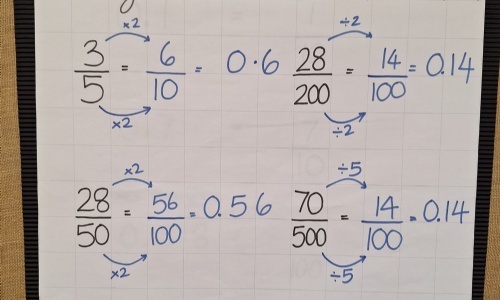 ×2 ÷2
3/5 = 6/10 = 0·6 28/200 = 14/100 = 0.14
×2 ÷2
×2 ÷5
28/50 = 56/100 = 0.56 70/500 = 14/100 = 0.14
×2 ÷5